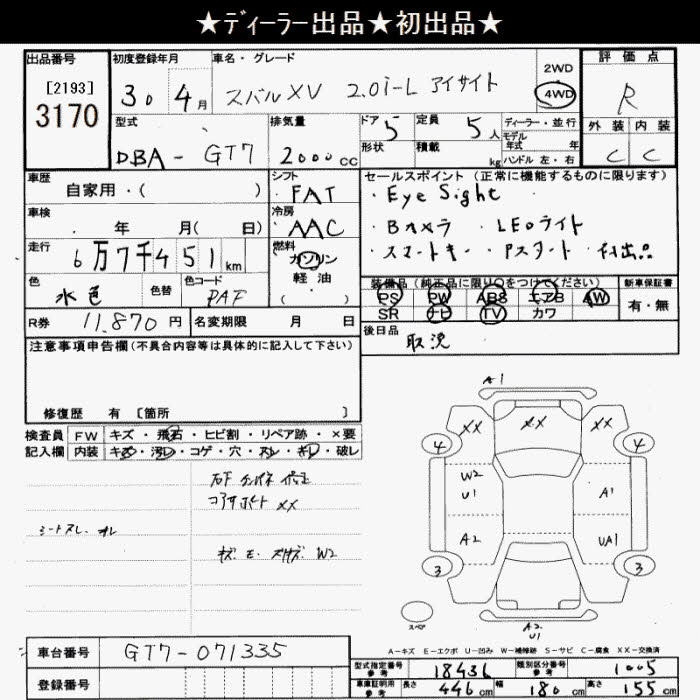 ★ディーラー出品★初出品★
出品番号 初度登録年月 車名・グレード 2WD 評価点
[2193] 30 4月 スバルXV 2.0i-L アイサイト 4WD R
3170 外装 内装
型式 排気量 ドア 5 定員 5人 ディーラー・並行
形状 積載 kg モデル年式 年
DBA-GT7 2000cc ハンドル 左・右 C C
車歴 シフト セールスポイント(正常に機能するものに限ります)
自家用・( ) FAT ・Eye Sight
車検 冷房 ・Bカメラ ・LEDライト
・ 年 月( 日) AAC ・スマートキー ・Pスタート
走行 燃料
6万7千451km ガソリン
色 色替 色コード 軽油 装備品(純正品に限り○をつけてください) 新車保証書
水色 PAF ( ) PS PW ABS エアB AW 有・無
R券 11,870円 名変期限 月 日 SR ナビ TV カワ
注意事項申告欄(不具合内容等は具体的に記入して下さい) 後日品 取説
修復歴 有 [箇所 ]
検査員 FW キズ・飛石・ヒビ割・リペア跡・×要
記入欄 内装 キズ・汚レ・コゲ・穴・スレ・キレ・破レ
コアサポート XX
シートスレ
W2
A1
XX XX XX
4 4
W2
U1 A1
A2 UA1
3 3
スペア
A2
U1
A-キズ E-エクボ U-凹み W-補修跡 S-サビ C-腐食 XX-交換済
車台番号 GT7-071335
型式指定番号 参考 18436 類別区分番号 参考 1005
登録番号
車庫証明用 参考 長さ 446cm 幅 180cm 高さ 155cm